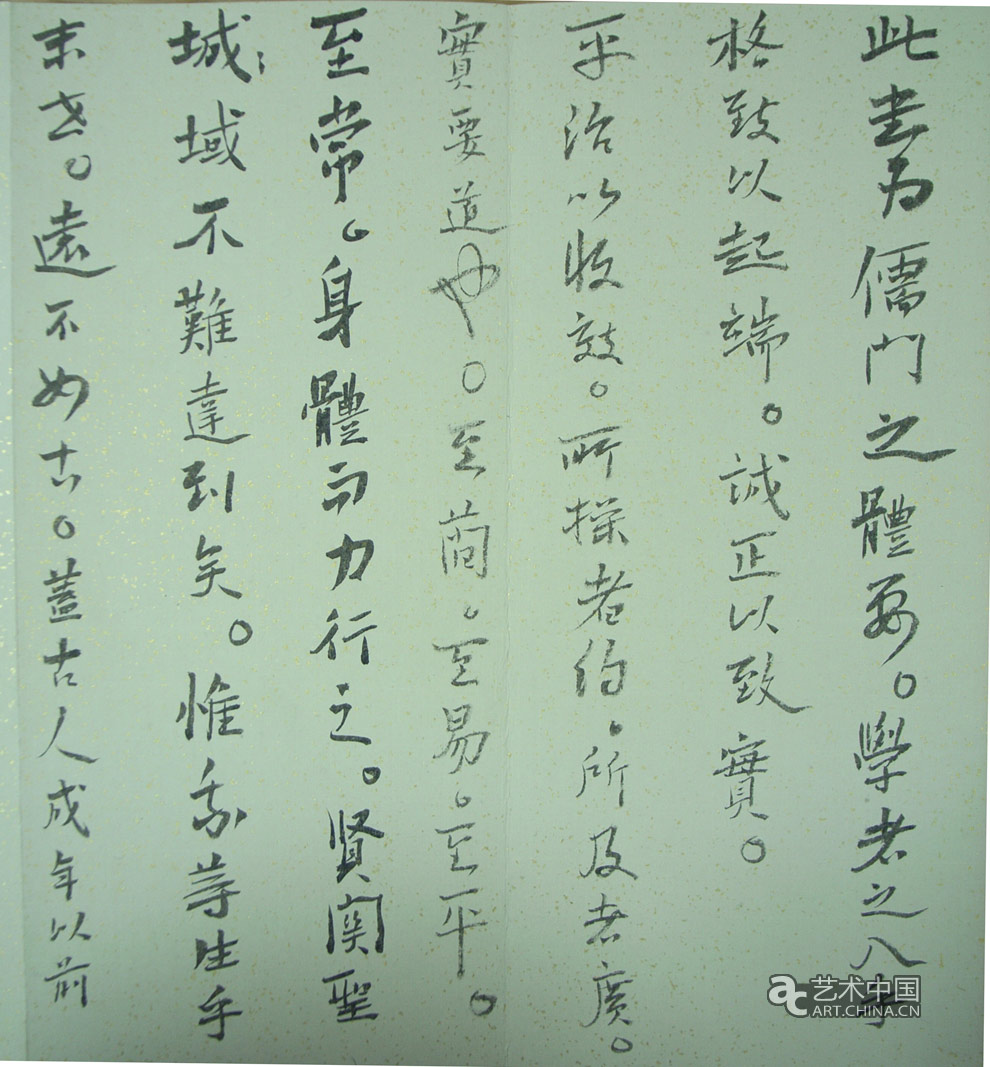 此書为儒門之體要。學者之入手
格致以起端。誠正以致實。
平治以收效。所操者约，所及者廣。
實要道也。至简，至易，至平。
至常。身體而力行之。贤関聖
域；域不難達到矣。惟我等生乎
末世。遠不如古。蓋古人成年以前
艺术中国
ART.CHINA.CN